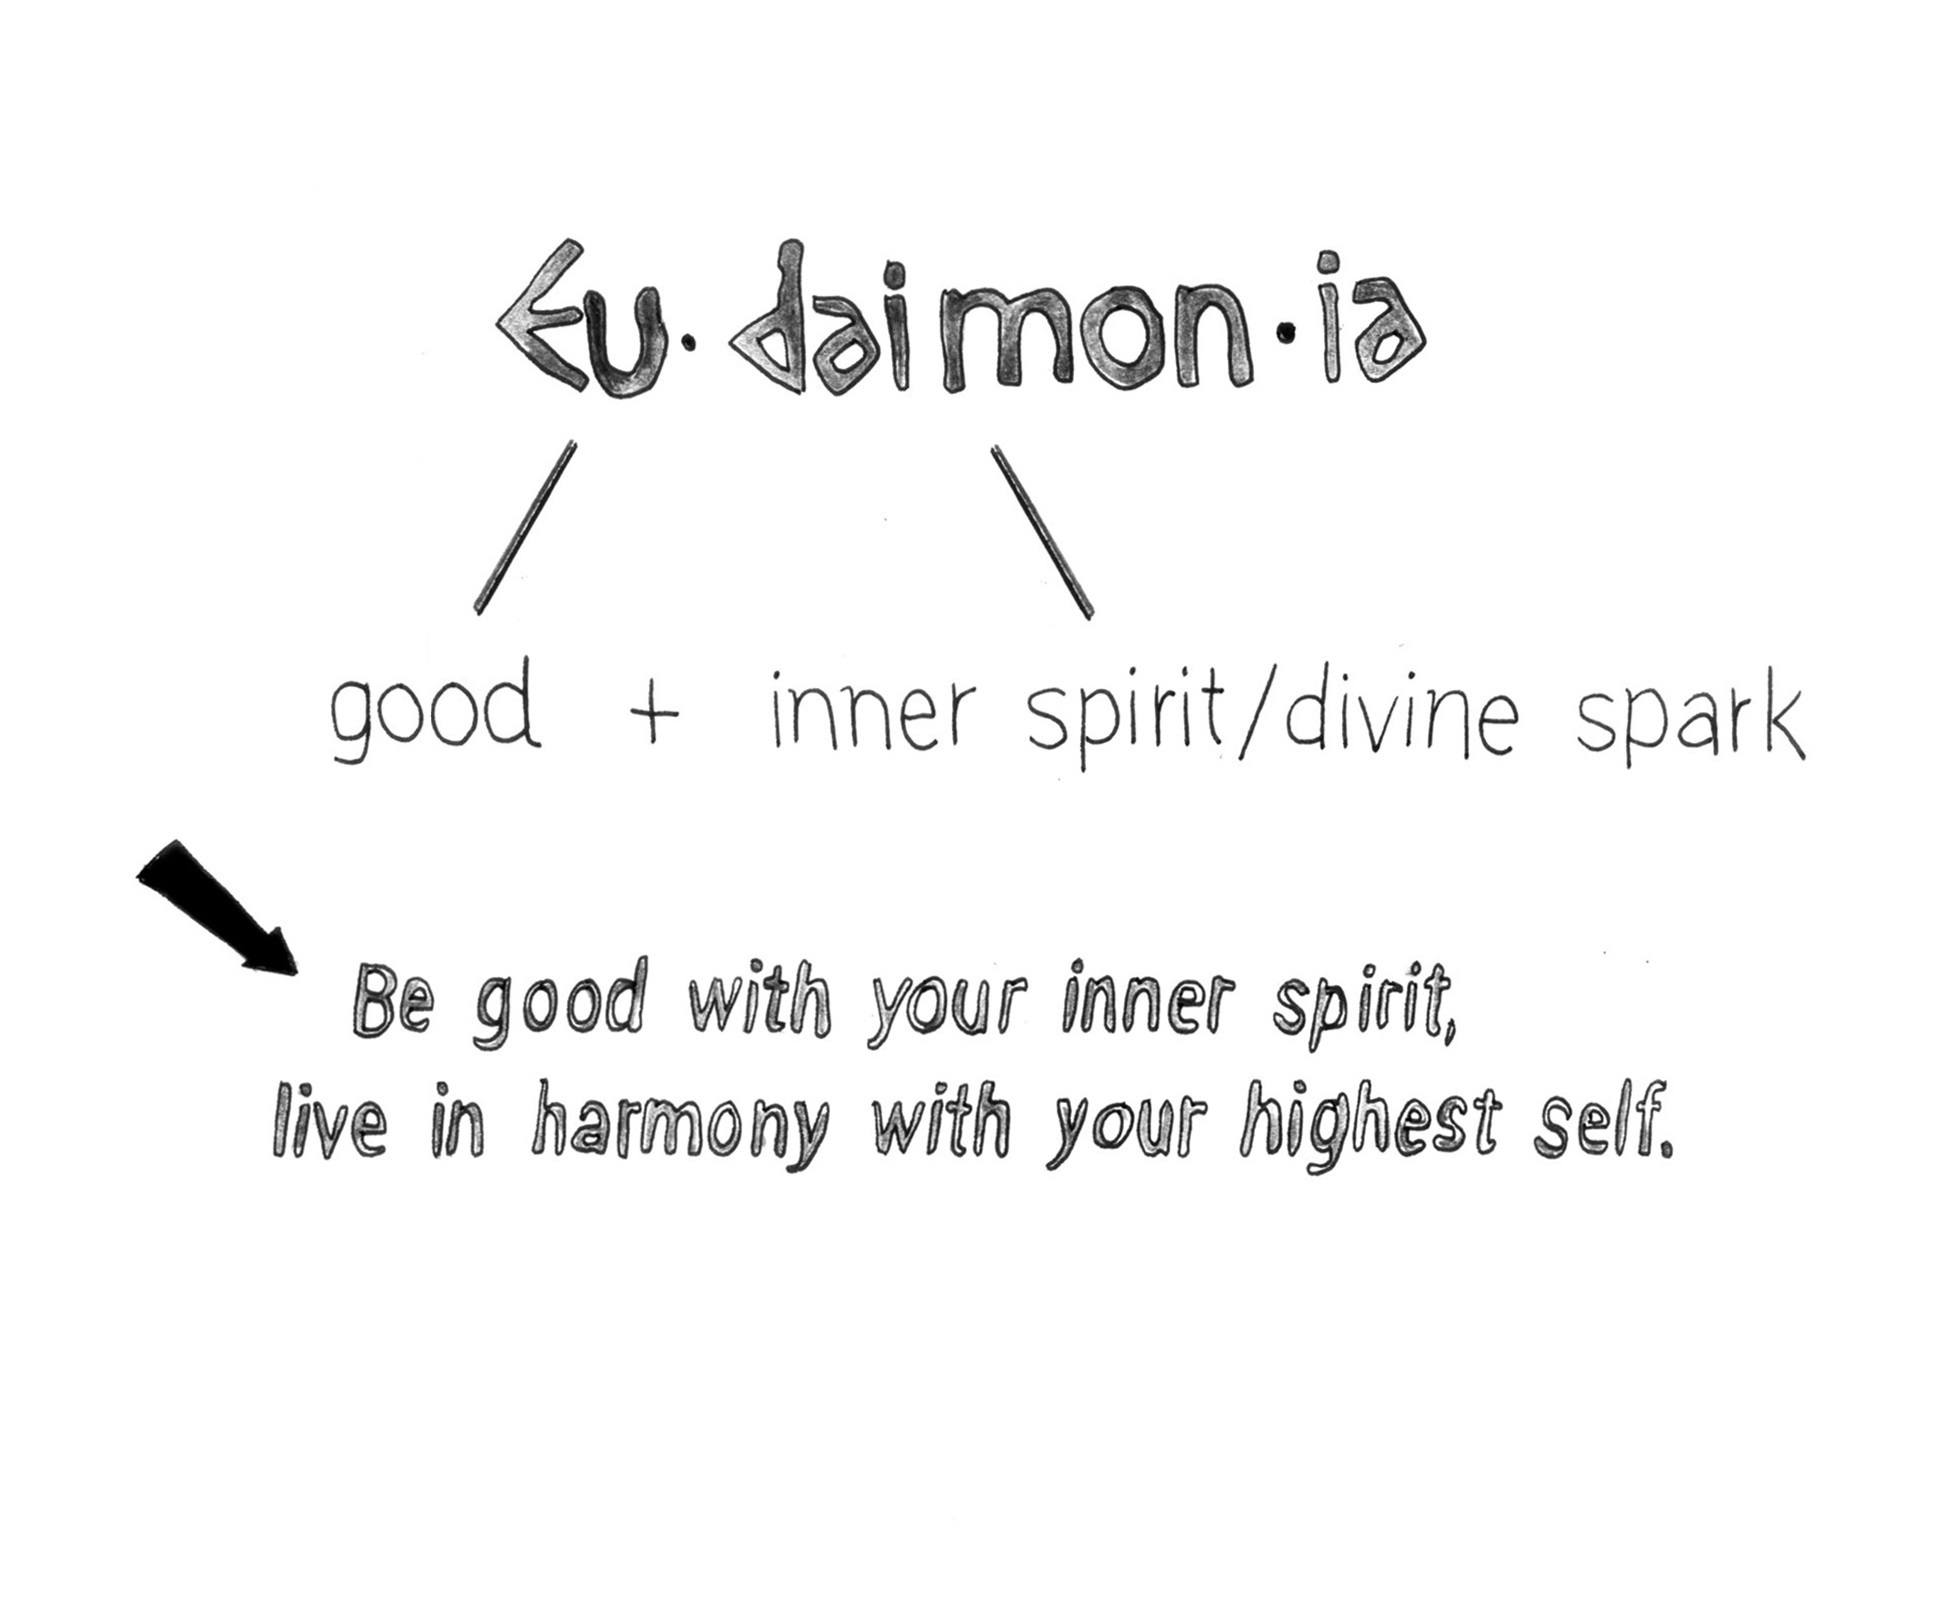 Eu·daimon·ia
good + inner spirit/divine spark
Be good with your inner spirit,
live in harmony with your highest self.